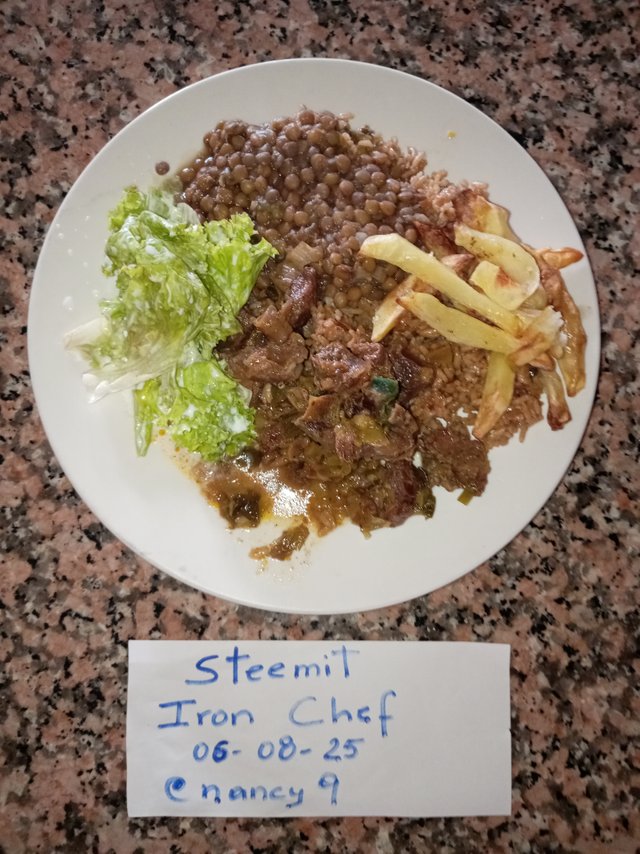 Steemit
Iron Chef
06-08-25
@nancy9